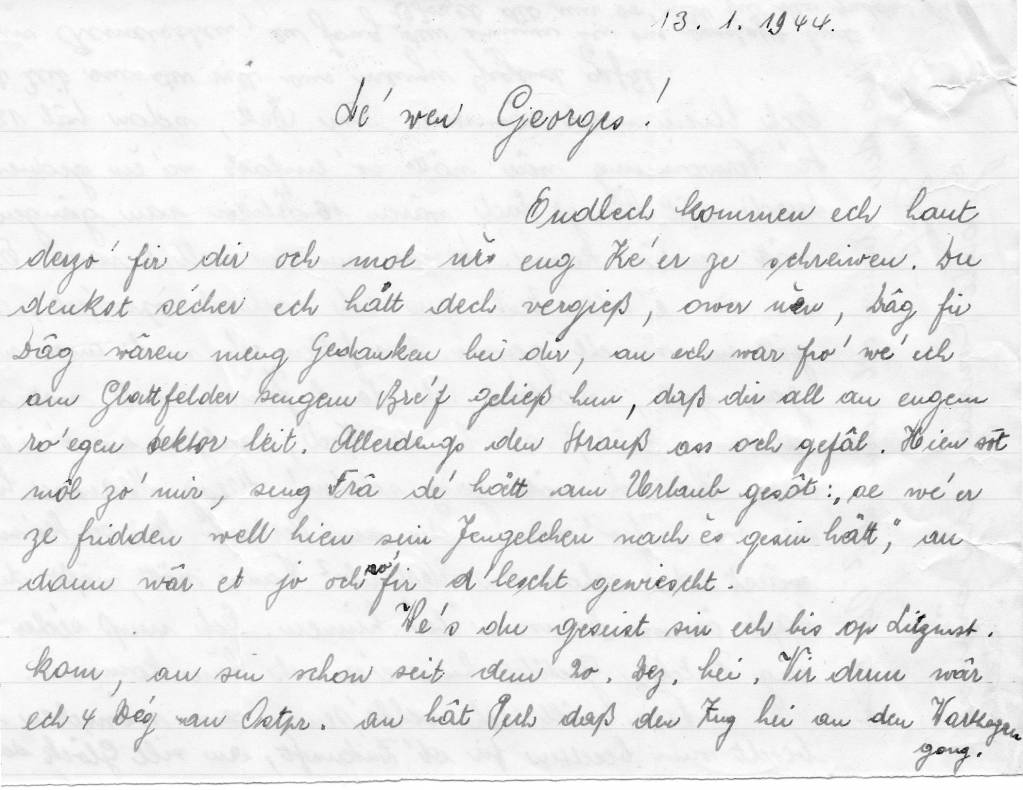 13. 1. 1944.
Lé wen Georges!
Endlech kommen ech haut
derzó fir dir och mol nĕs eng Ké'er ze schreiwen. Du
denkst sécher ech hätt dech vergieß, ower nĕn, Dâg fir
Dâg wâren meng Gedanken bei dir, an ech war fro' we' ech
am Glattfelder sengem Bre'f geließ hun, daß dir all an engem
ro'egen Sektor leit. Allerdengs den Strauß ass och gefâl. Hien sot
môl zo' mir, seng Frâ de' hätt am Urlaub gesôt: „se we'er
ze fridden well hien sein Jengelchen nach ĕs gesin hätt", an
dann wär et jo och so' fir d'lescht gewiescht.
We's du geseist sin ech bis op Litzmst.
kom, an sin schon seit dem 20. Dez. hei. Vir drun wâr
ech 4 Dég an Ostpr. an hât Pech daß den Zug hei an den
gong.